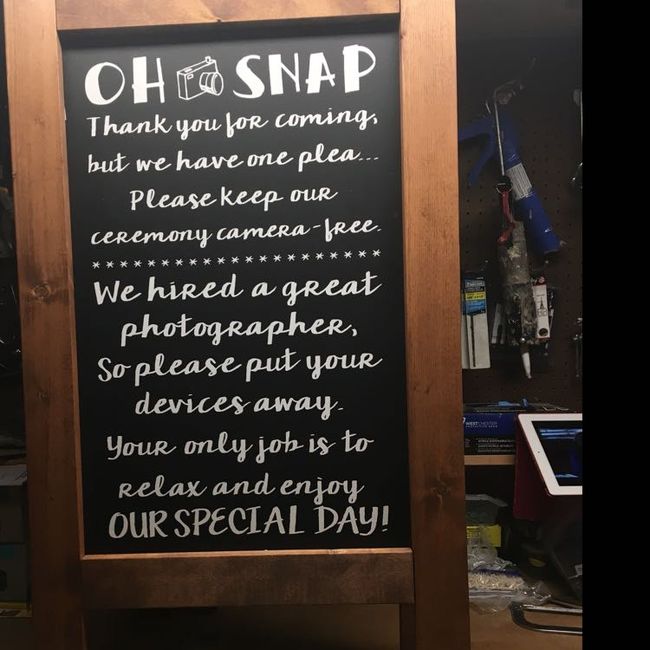 OH SNAP
Thank you for coming,
but we have one plea...
Please keep our
ceremony camera-free.
* * * * * * * * * * * * * * * * * * * * *
We hired a great
photographer,
So please put your
devices away.
Your only job is to
relax and enjoy
OUR SPECIAL DAY!
WEST CHESTER